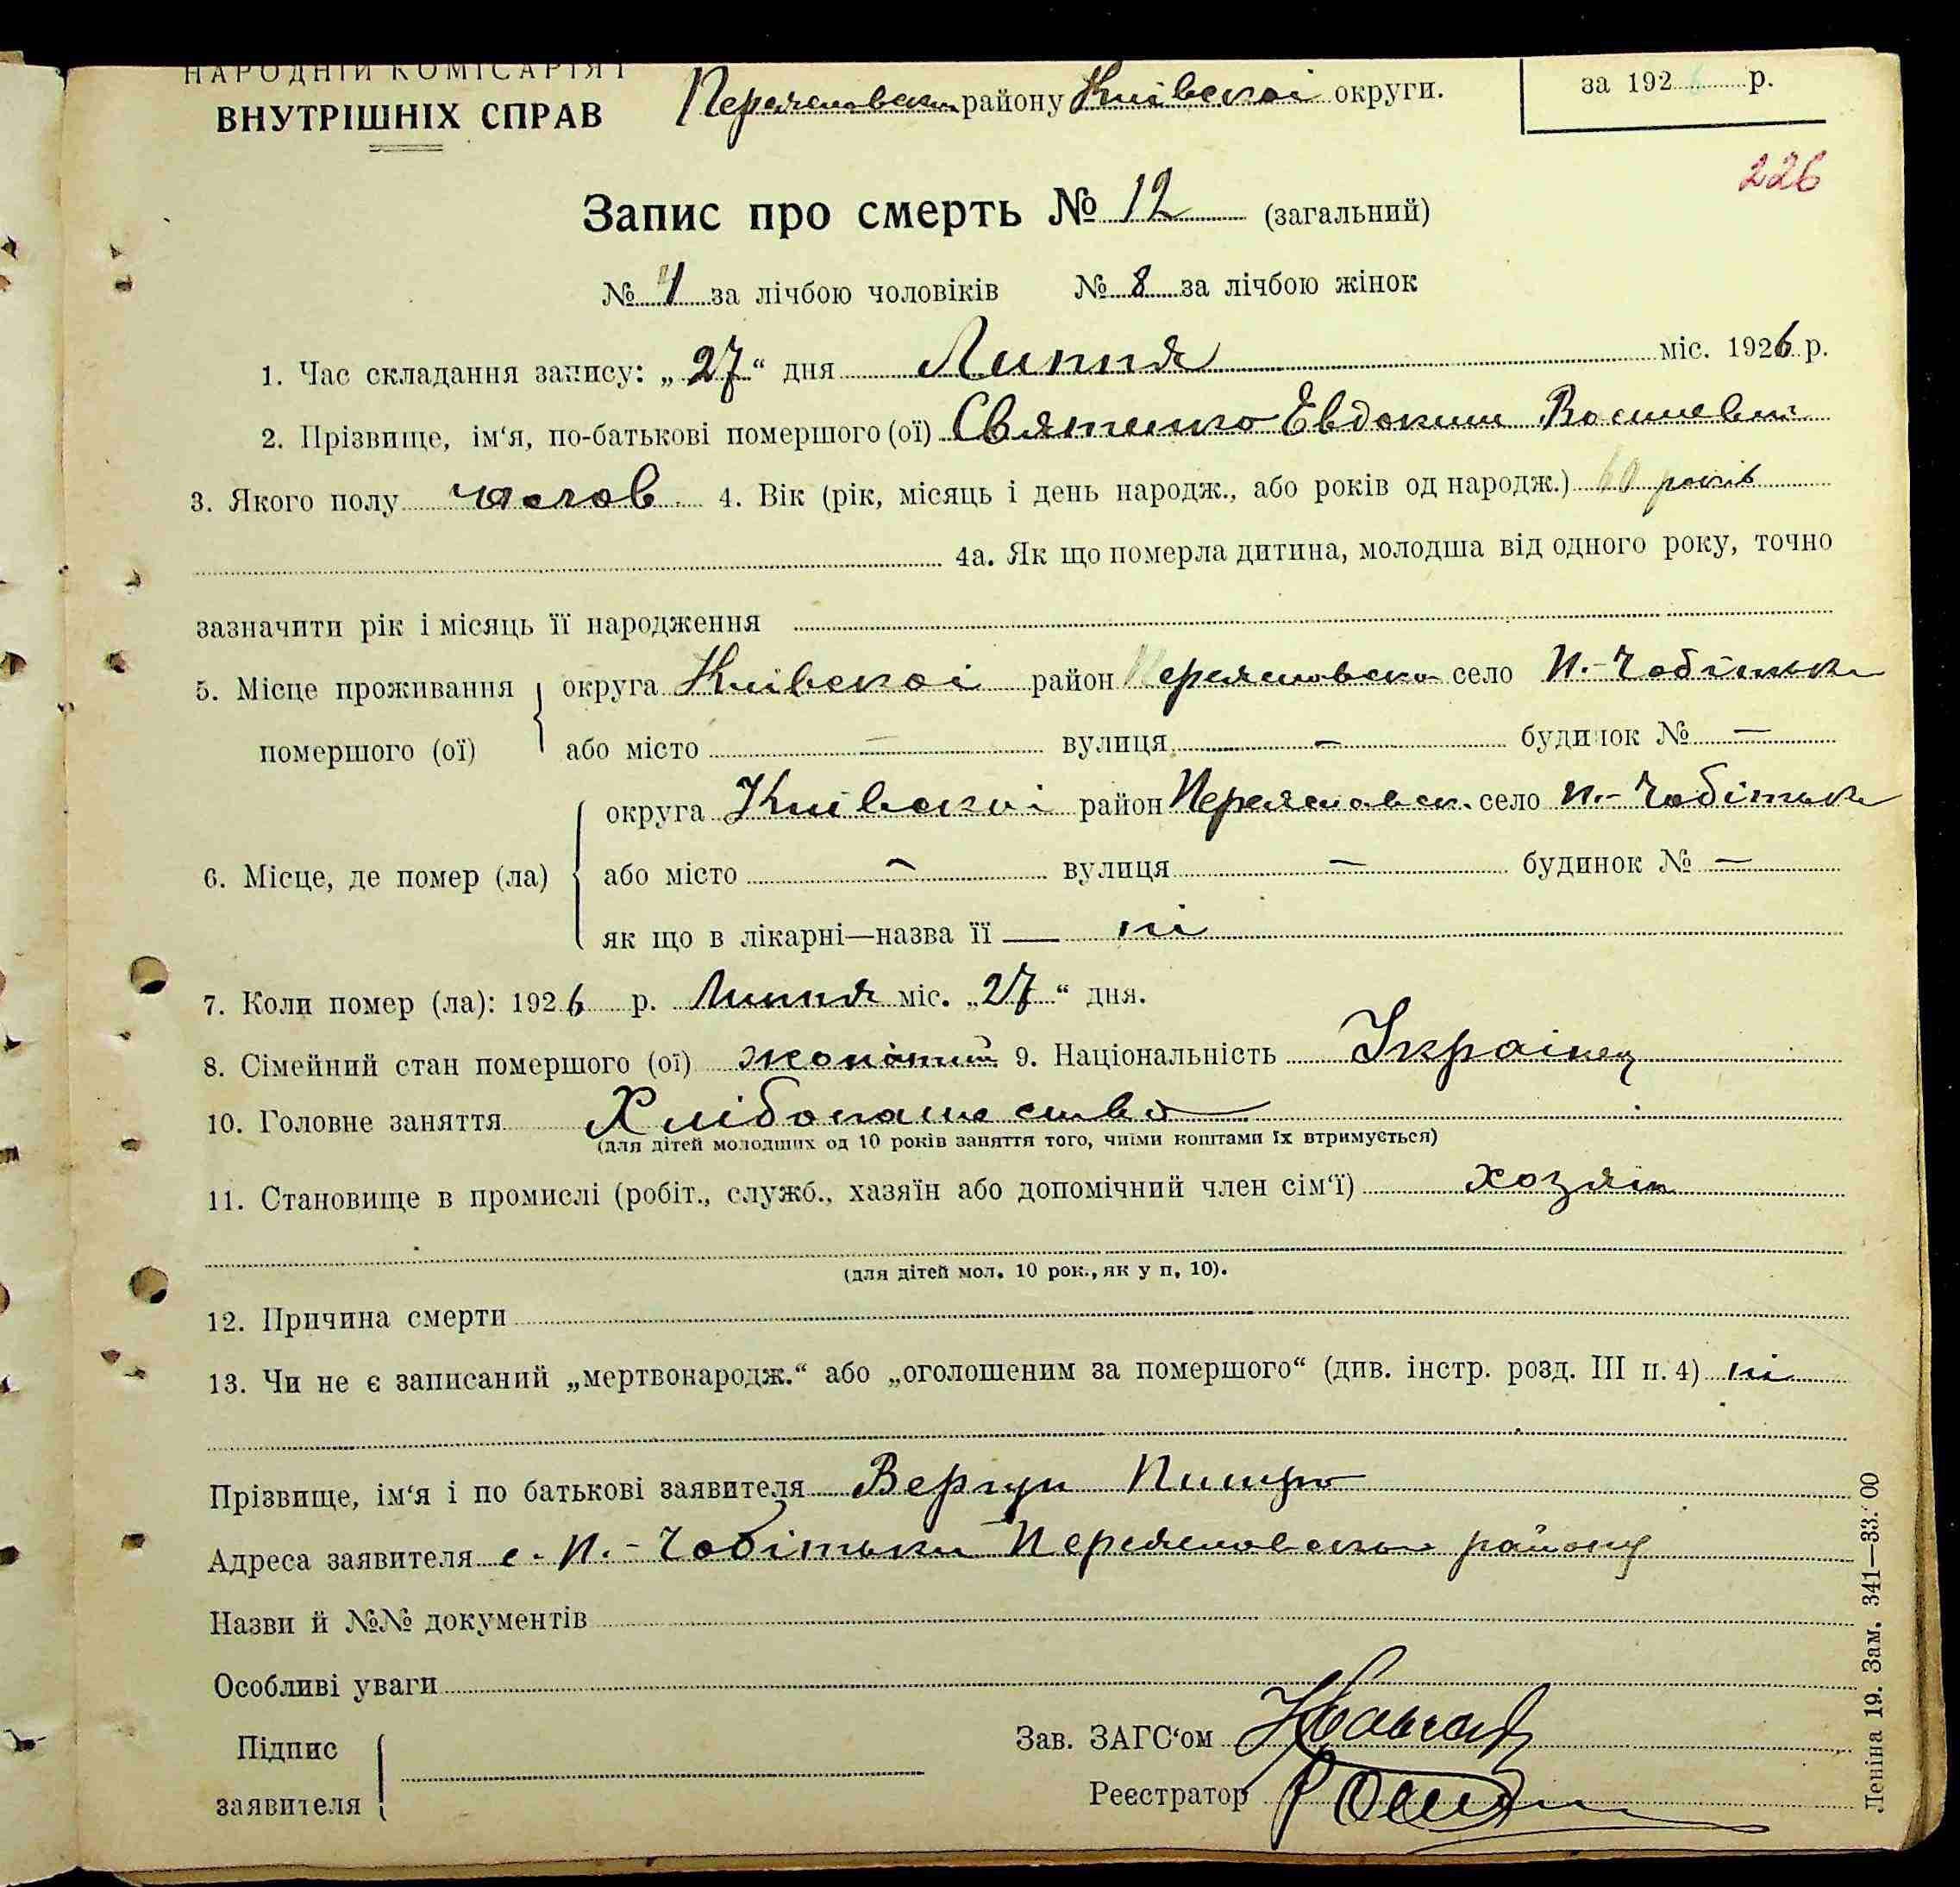 НАРОДНІЙ КОМІСАРІЯТ
ВНУТРІШНІХ СПРАВ
Переяславськ району Київскоі округи.
за 192 р.
226
Запис про смерть № 12 (загальний)
№ 4 за лічбою чоловіків № 8 за лічбою жінок
1. Час складання запису: „27“ дня Липня міс. 1926 р.
2. Прізвище, ім‘я, по-батькові помершого (ої) Святенко Евдоким Василевич
3. Якого полу чолов. 4. Вік (рік, місяць і день народж., або років од народж.) 60 років
4а. Як що померла дитина, молодша від одного року, точно
зазначити рік і місяць її народження
5. Місце проживання помершого (ої) округа Киівскоі район Переяславск село П.-Чобітьки
або місто — вулиця — будинок № —
6. Місце, де помер (ла) округа Киівскоі район Переяславск. село П.-Чобітьки
або місто — вулиця — будинок № —
як що в лікарні—назва її — ні
7. Коли помер (ла): 1926 р. Липня міс. „27“ дня.
8. Сімейний стан помершого (ої) жонатий 9. Національність Украінец
10. Головне заняття Хлібопашество
(для дітей молодших од 10 років заняття того, чиїми коштами їх втримується)
11. Становище в промислі (робіт., служб., хазяїн або допомічний член сім‘ї) хозяін
(для дітей мол. 10 рок., як у п. 10).
12. Причина смерти
13. Чи не є записаний „мертвонародж.“ або „оголошеним за помершого“ (див. інстр. розд. III п. 4) ні
Прізвище, ім‘я і по батькові заявителя Вергун
Адреса заявителя с. П.-Чобітьки Переяславськ району
Назви й №№ документів
Особливі уваги
Підпис заявителя
Зав. ЗАГС‘ом
Реєстратор
Леніна 19. Зам. 341—33.